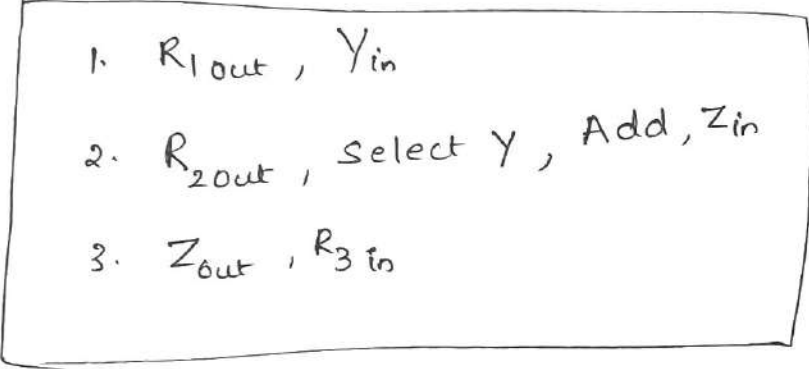 1. R1 out, Yin
2. R2out, Select Y, Add, Zin
3. Zout, R3 in